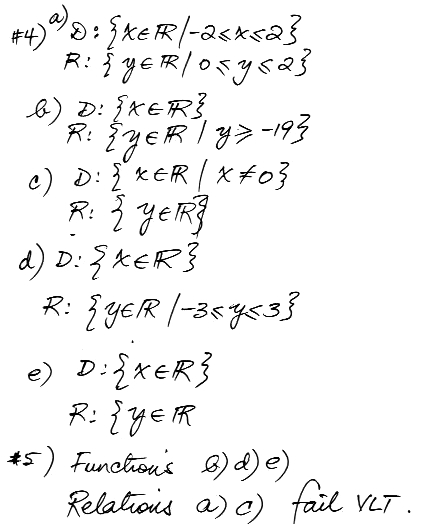 #4) a) D: {x∈ℝ | -2≤x≤2}
R: {y∈ℝ | 0≤y≤2}
b) D: {x∈ℝ}
R: {y∈ℝ | y≥-19}
c) D: {x∈ℝ | x≠0}
R: {y∈ℝ}
d) D: {x∈ℝ}
R: {y∈ℝ | -3≤y≤3}
e) D: {x∈ℝ}
R: {y∈ℝ
#5) Function's b) d) e)
Relations a) c) fail VLT.